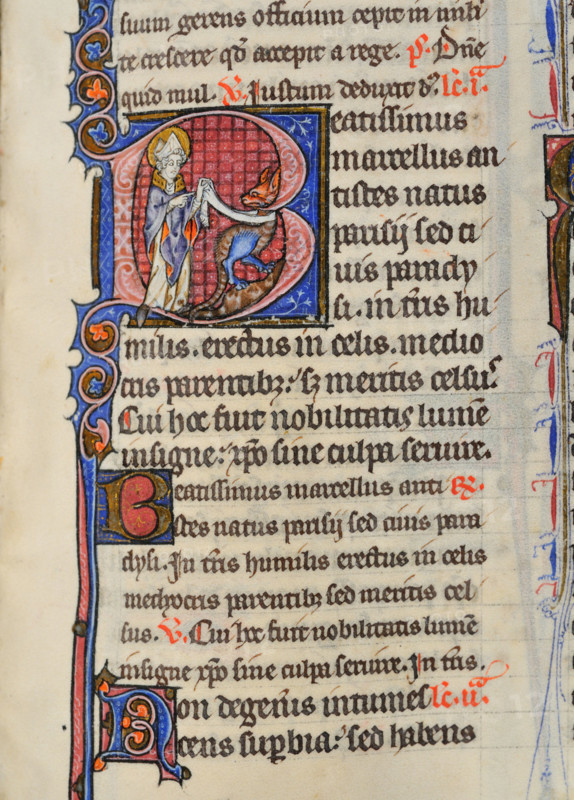 suum gerens officium cepit in mili
te crescere qď accepit a rege. ps. Dn̄e
quid mul. V. Iustum deduxit d's. lc̄. i.ª
Beatissimus
marcellus an
tistes natus
parisij sed ci
uis parady
si. in t̄ris hu
milis. erectus in celis. medio
cris parentibꝫ: sꝫ meritis celsuˢ.
Cui hoc fuit nobilitatis lumē
insigne: xp̄o sine culpa seruire.
Beatissimus marcellus anti R.
stes natus parisij sed ciuis para
dysi. In t̄ris humilis erectus in celis
medyocris parentibꝫ sed meritis cel
sus. V. Cui hoc fuit nobilitatis lumē
insigne xp̄o sine culpa seruire. In t̄ris.
Non degen̄is intumes lc̄. ii.ª
cens sup̄bia: sed habens